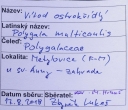 Název: Vítod ostrokřídlý
Latinský název:
Polygala multicaulis
Čeleď: Polygalaceae
Lokalita: Metylovice (F-M)
u sv. Anny - Zahrada
Datum sběru: Sběratel:
17.8.2018 Zbyněk Lukeš